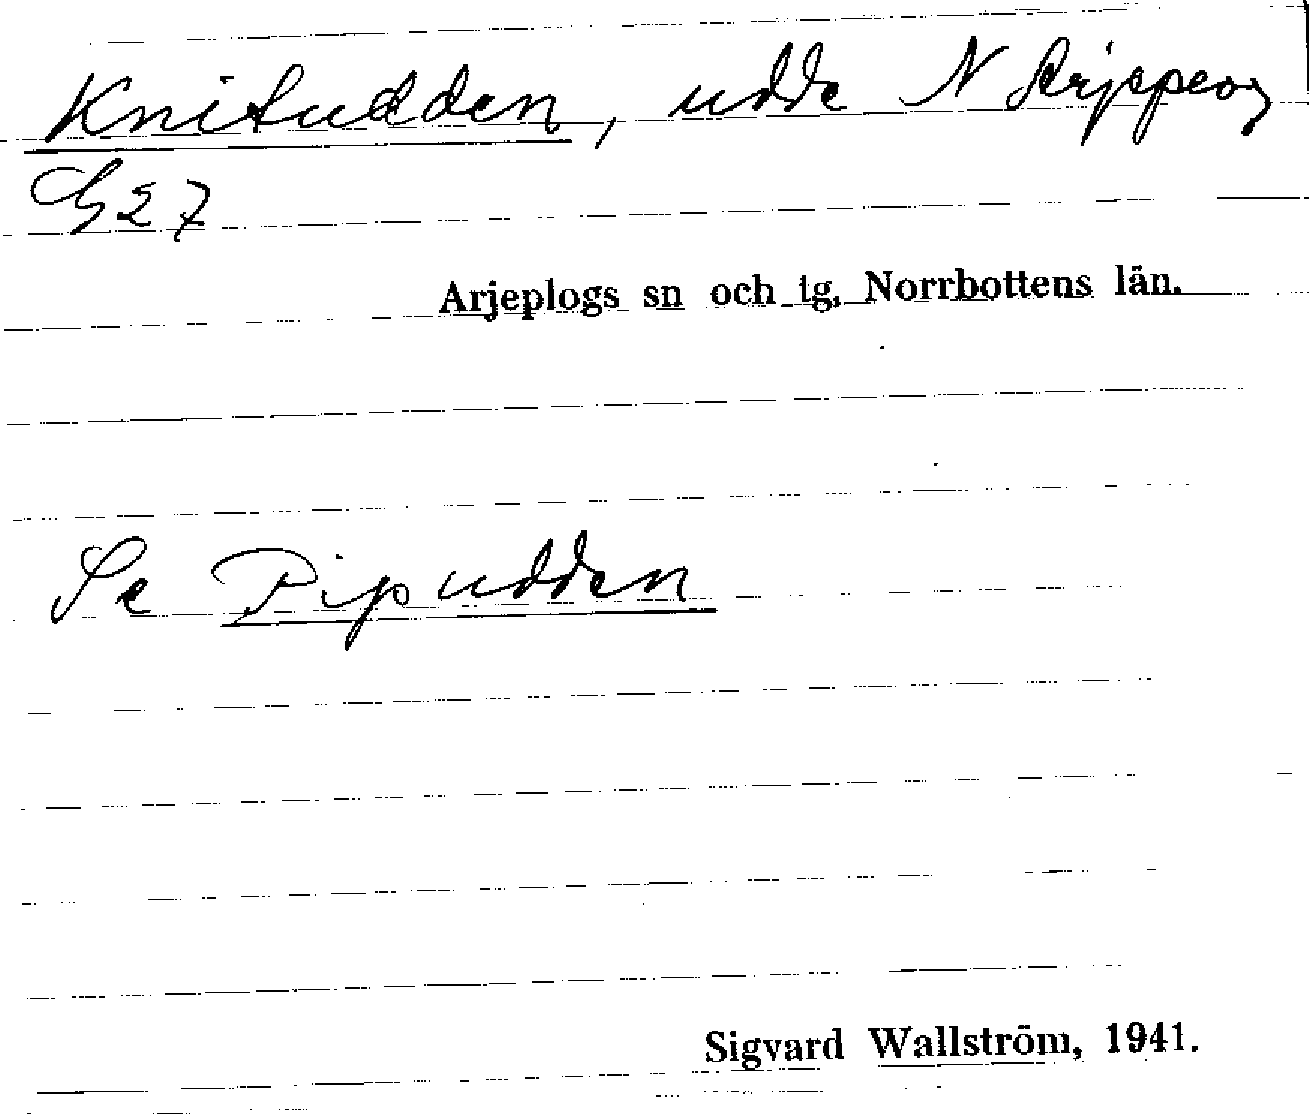 Knitudden, udde N Arjeplog
G 27
Arjeplogs sn och tg, Norrbottens län.
Se Pipudden
Sigvard Wallström, 1941.